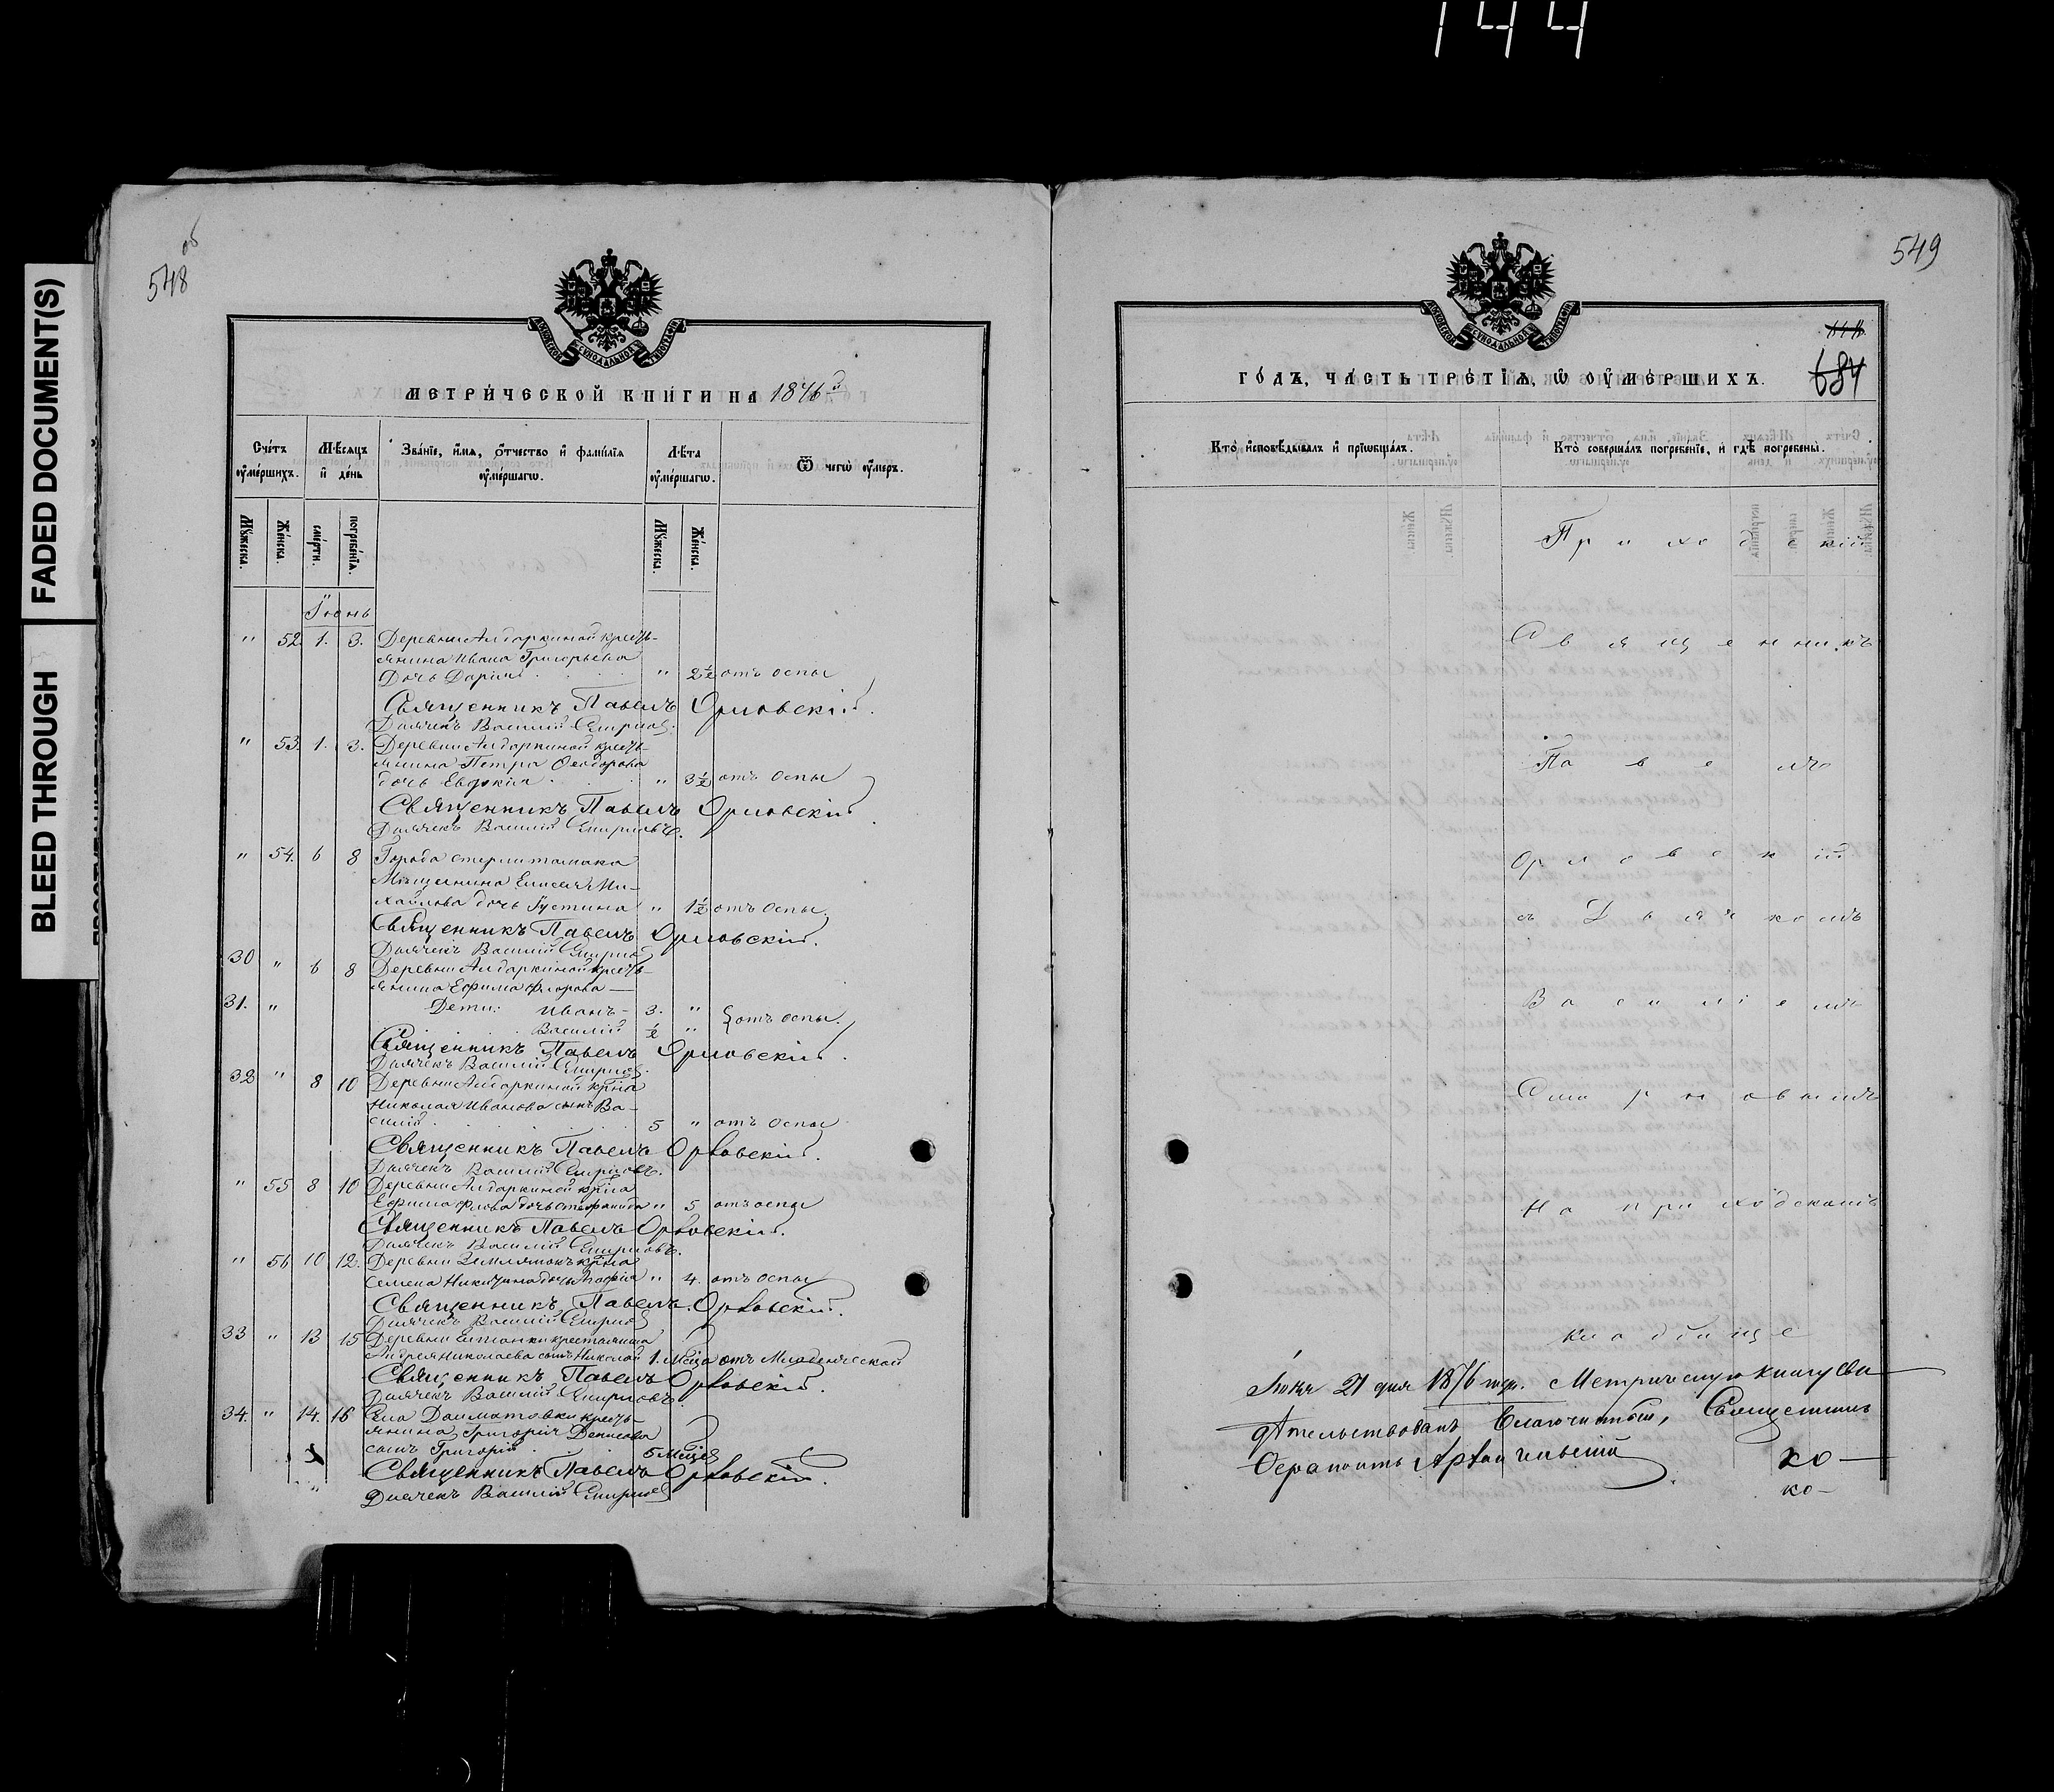 144
FADED DOCUMENT(S)
BLEED THROUGH
548 об
МОСКОВСКОЙ СѴНОДАЛЬНОЙ ТИПОГРАФІИ
МЕТРИЧЕСКОЙ КНИГИ НА 1876 д
Счетъ оумершихъ.
Мѣсяцъ и день
Званіе, имя, отчество и фамилія оумершагѡ.
Лѣта оумершагѡ.
Ѿ чегѡ оумеръ.
Мꙋжеска.
Женска.
смерти.
погребенія.
Мꙋжеска.
Женска.
Іюнь
" 52. 1. 3. Деревни Алдаркиной кресть-
янина Ивана Григорьева
Дочь Дарія " 2½ отъ оспы
Священникъ Павелъ Орловскій.
Дьячекъ Василій Смирновъ.
" 53. 1. 3. Деревни Алдаркиной кресть-
янина Петра Ѳеодорова
дочь Евдокія " 3½ отъ оспы
Священникъ Павелъ Орловскій
Дьячекъ Василій Смирновъ.
" 54. 6 8 Города Стерлитамака
Мѣщанина Елисея Ми-
хайлова дочь Іустина " 1½ отъ оспы.
Священникъ Павелъ Орловскій.
Дьячекъ Василій Смирнов
30 " 6 8 Деревни Алдаркиной кресть-
янина Ефима Флорова —
31. " Дети: Иванъ - 3. "
Василій ½ " отъ оспы.
Священникъ Павелъ Орловскій.
Дьячекъ Василій Смирнов.
32 " 8 10 Деревни Алдаркиной крна
Николая Иванова сынъ Ва-
силій 5 " отъ оспы
Священникъ Павелъ Орловскій.
Дьячекъ Василій Смирновъ.
" 55 8 10 Деревни Алдаркиной крна
Ефима Флова дочь Стефанида " 5 отъ оспы
Священникъ Павелъ Орловскій.
Дьячекъ Василій Смирновъ.
" 56 10 12. Деревни Землянокъ крна
Семена Никитина дочь " 4. отъ оспы
Священникъ Павелъ Орловскій.
Дьячекъ Василій Смирнов
33 " 13 15 Деревни крестьянина
Андрея Николаева сынъ Николай 1. Мѣца отъ Младенческой
Священникъ Павелъ Орловскій.
Дьячекъ Василій Смирновъ.
34. " 14. 16 Села Долматовки кресть-
янина Григорія Денисова
сынъ Григорій 5 Мѣцев
Священникъ Павелъ Орловскій.
Дьячекъ Василій Смирнов
549
МОСКОВСКОЙ СѴНОДАЛЬНОЙ ТИПОГРАФІИ
684
ГОДЪ, ЧАСТЬ ТРЕТІѦ, Ѡ ОУМЕРШИХЪ.
Кто исповѣдывалъ и пріѡбщалъ.
Кто совершалъ погребеніе, и гдѣ погребены.
Приходскій
Священникъ
Павелъ
Орловскій
съ Дьячкомъ
Василіемъ
Смирновымъ
На приходскомъ
кладбище
Іюля 21 дня 1876 года. Метрическую книгу сви-
дѣтельствовалъ Благочинный, Священникъ
Ѳерапонтъ Архангельскій
хо —
ко —